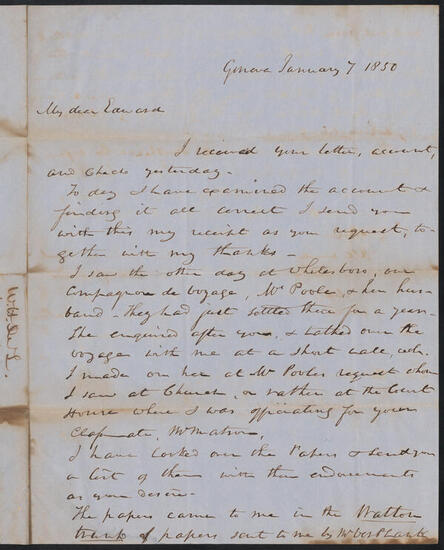 Geneva January 7 1850
My dear Edward
I received your letter, account,
and check yesterday.
To day I have examined the account &
finding it all correct I send you
with this my receipt as you request, to-
gether with my thanks -
I saw the other day at Whitesboro, our
Compagnon de voyage, Mrs Poole, & her hus-
band - they had just settled there for a year -
She enquired after you, & talked over the
voyage with me at a short call, wh.
I made on her at Mr Pooles request whom
I saw at Church, or rather at the Court
House where I was officiating for your
Classmate, Mr Matson,
I have looked over the Papers & send you
a list of them with their endorsements
as you desire -
The papers came to me in the Watton
trunk of papers sent to me by Mr